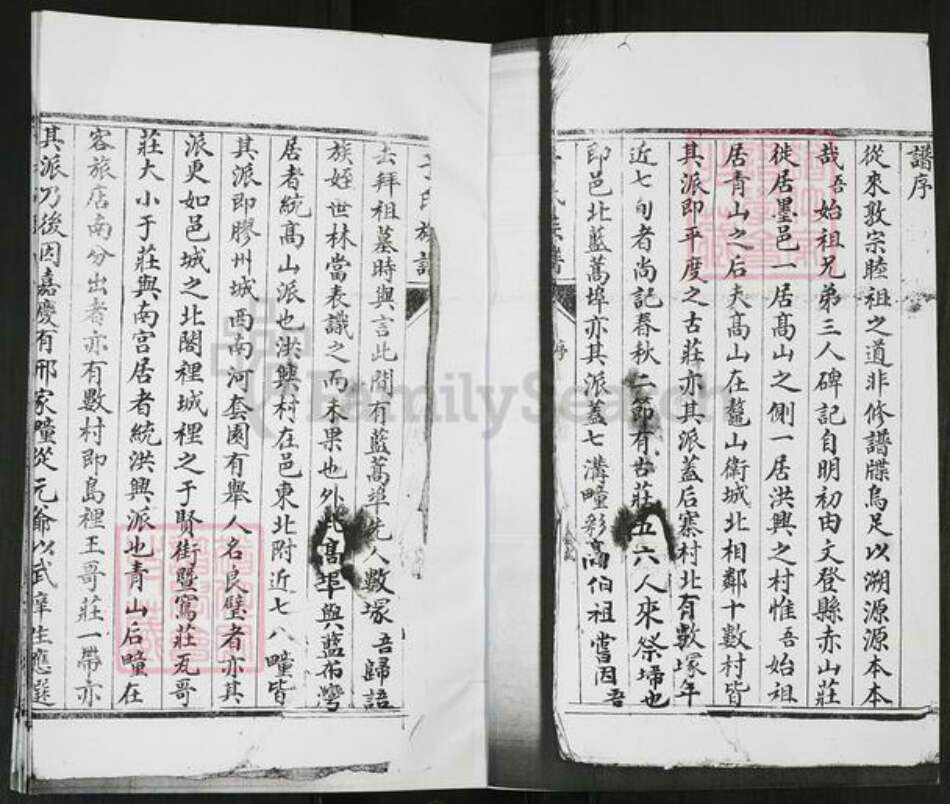 譜序
從來敦宗睦祖之道非修譜牒烏足以溯源源本本
哉吾始祖兄弟三人碑記自明初由文登縣赤山莊
徙居墨邑一居高山之側一居洪興之村惟吾始祖
居青山之后夫高山在鼇山衛城北相鄰十數村皆
其派即平度之古莊亦其派蓋后寨村北有數塚年
近七旬者尚記春秋二節有古莊五六人來祭埽也
即邑北藍蒿埠亦其派蓋七溝疃彩高伯祖嘗因吾
于氏族譜
序
去拜祖墓時與言此間有藍蒿埠先人數塚吾歸語
族姪世林當表識之而未果也外此高埠與藍布灣
居者統高山派也洪興村在邑東北附近七八疃皆
其派即膠州城西南河套園有舉人名良璧者亦其
派更如邑城之北閣裡城裡之于賢街暨窩莊瓦哥
莊大小于莊與南宮居者統洪興派也青山后疃在
客旅店南分出者亦有數村即島裡王哥莊一帶亦
其派乃後因嘉慶有邢家疃從元爺以武庠生應選
FamilySearch